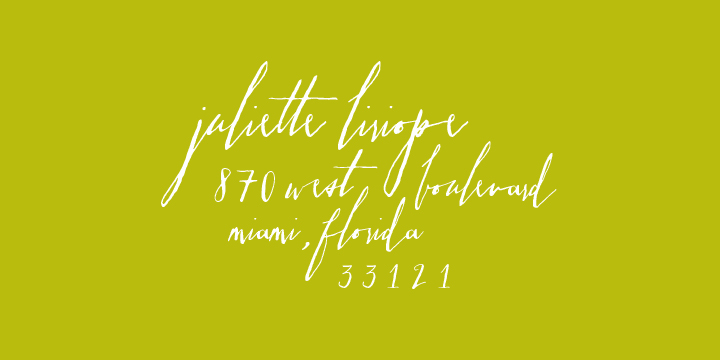 juliette lisiope
870 west boulevard
miami, florida
33121